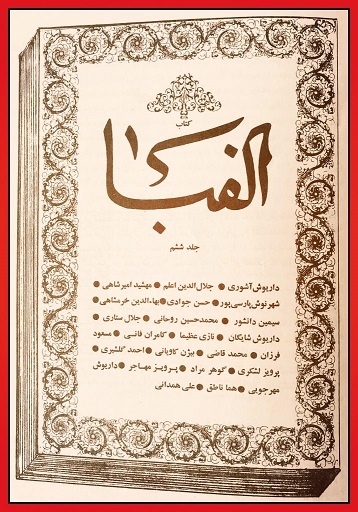 کتاب
الفبا
جلد ششم
داریوش آشوری ● جلال‌الدین اعلم ● مهشید امیرشاهی ●
شهرنوش پارسی‌پور ● حسن جوادی ● بهاءالدین خرمشاهی ●
سیمین دانشور ● محمدحسین روحانی ● جلال ستاری ●
داریوش شایگان ● نازی عظیما ● کامران فانی ● مسعود
فرزان ● محمد قاضی ● بیژن کاویانی ● احمد گلشیری ●
پرویز لشکری ● گوهر مراد ● پرویز مهاجر ● داریوش
مهرجویی ● هما ناطق ● علی همدانی